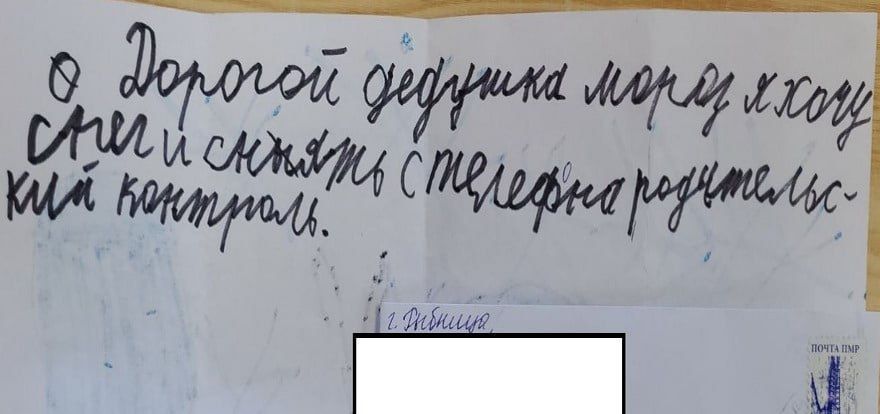 О Дорогой дедушка мороз я хочу
снег и снять с телефона родительс-
кий контроль.
г. Рыбница,
ПОЧТА ПМР